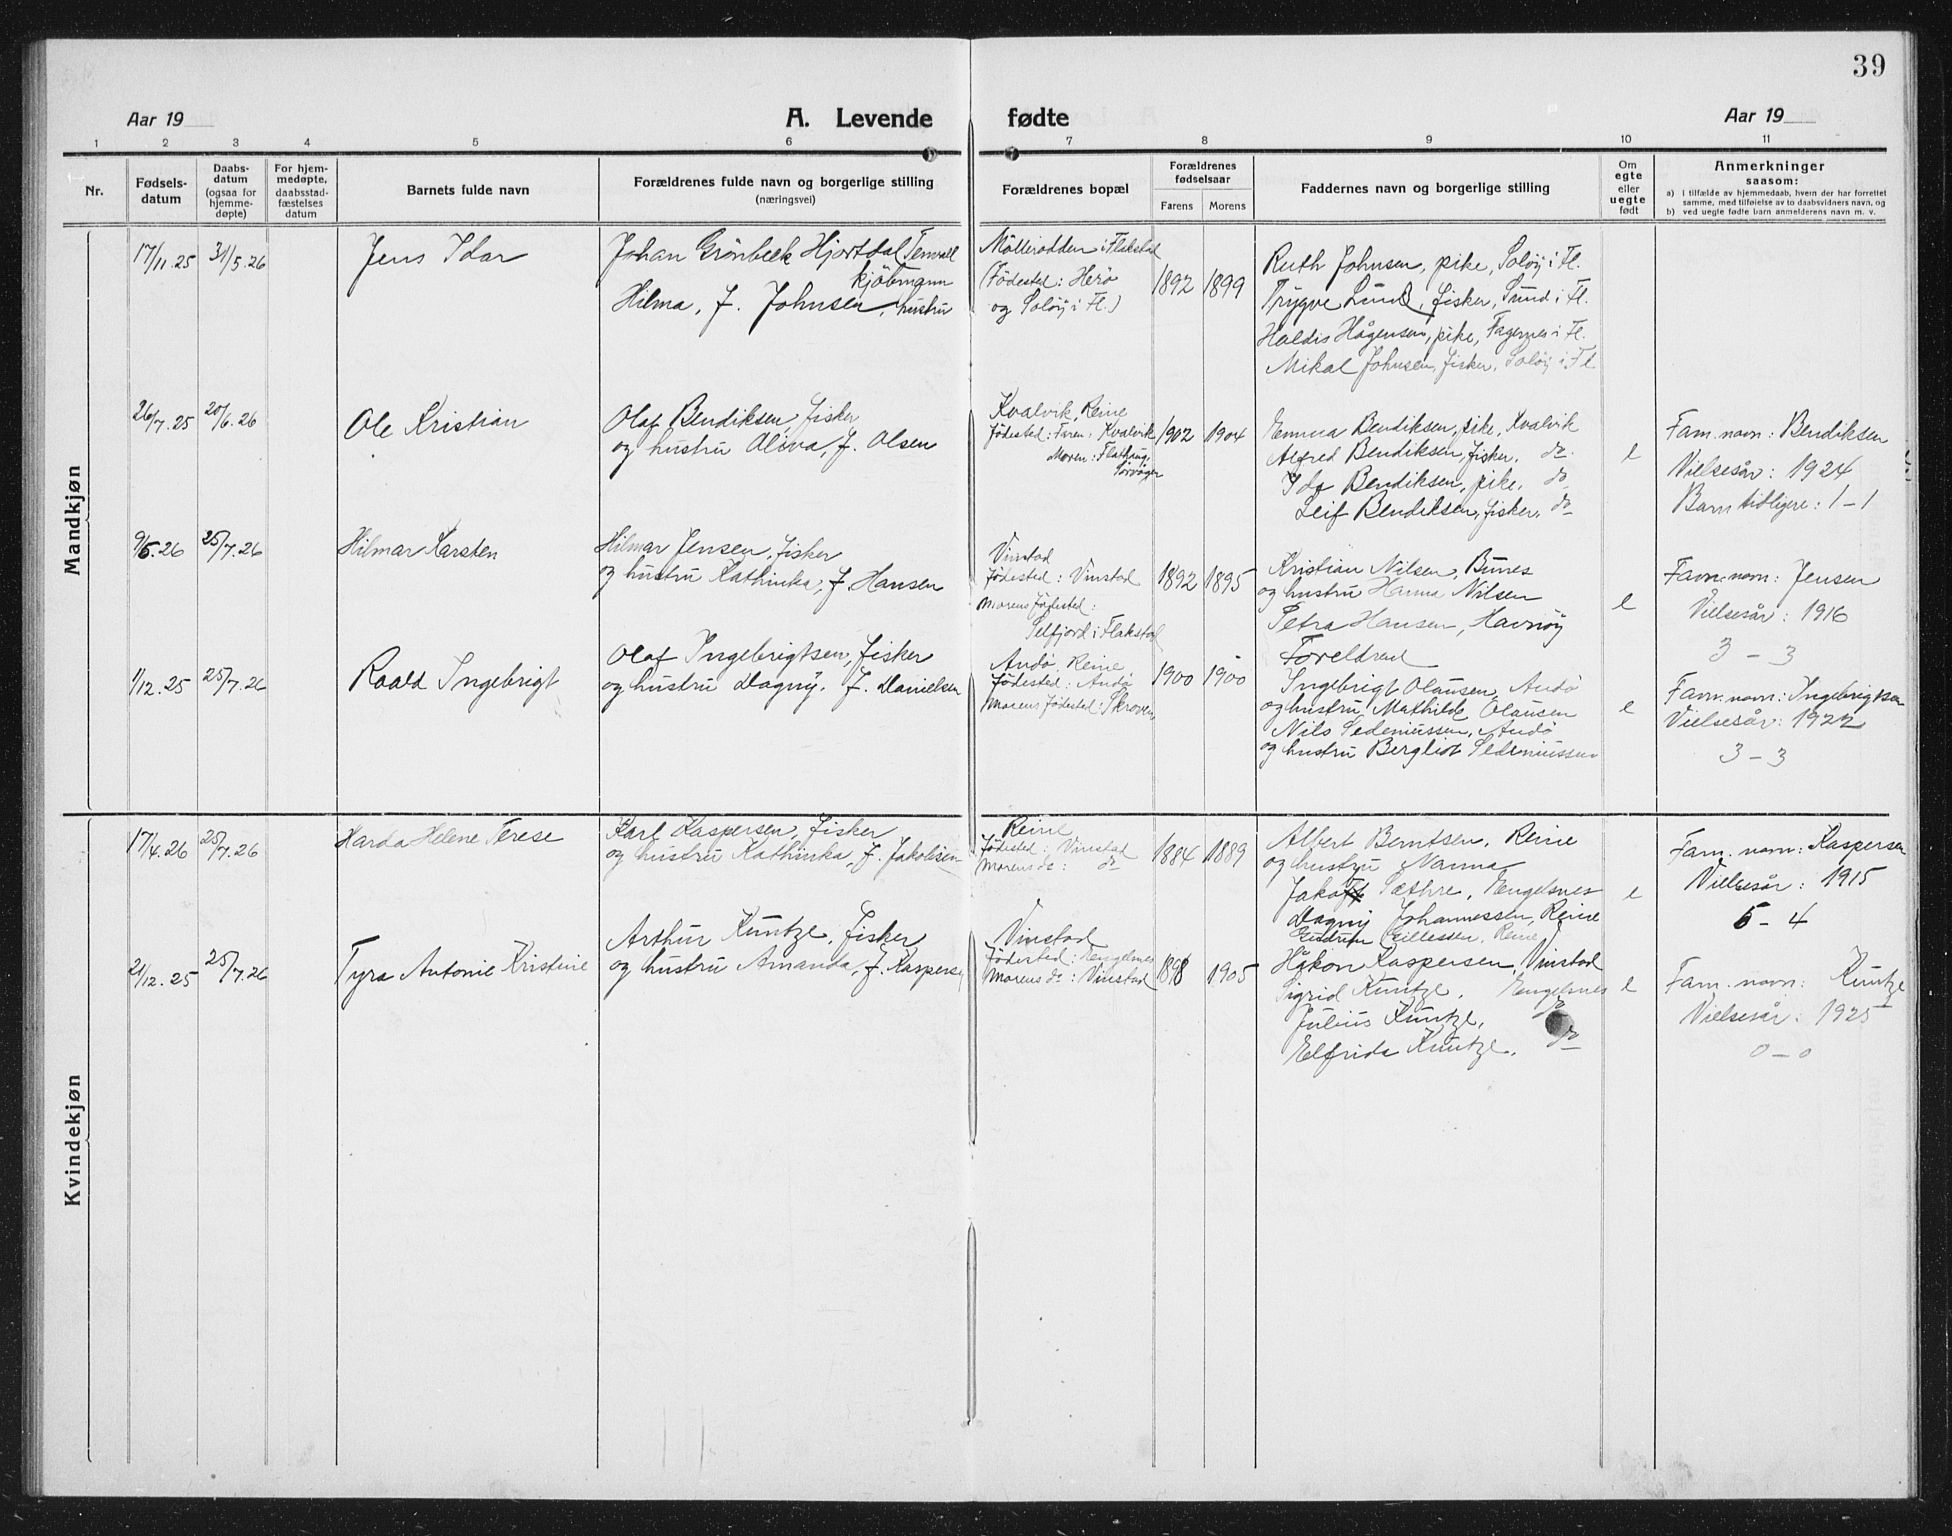 39
Aar 19
A. Levende fødte
Aar 19
1 2 3 4 5 6 7 8 9 10 11
Nr.
Fødsels-
datum
Daabs-
datum
(ogsaa for
hjemme-
døpte)
For hjem-
medøpte,
daabsstad-
fæstelses
datum
Barnets fulde navn
Forældrenes fulde navn og borgerlige stilling
(næringsvei)
Forældrenes bopæl
Forældrenes
fødselsaar
Farens Morens
Faddernes navn og borgerlige stilling
Om
egte
eller
uegte
født
Anmerkninger
saasom:
a) I tilfælde av hjemmedaab, hvem der har forrettet
samme, med tilføielse av to daabsvidners navn, og
b) ved uegte fødte barn anmelderens navn m. v.
Mandkjøn
17/11.25 31/5.26
Jens Idar
Johan Grönbeck Hjortdal
kjöbmann
Hilma, f. Johnsen, hustru
Mölleodden i Flakstad
(Födested: Herö
og Solöy i Fl.)
1892 1899
Ruth Johnsen, pike, Solöy i Fl.
Trygve Lund, fisker, Sund i Fl.
Haldis Hågensen, pike, Fagernes i Fl.
Mikal Johnsen, fisker, Solöy i Fl
26/7.25 20/6.26
Ole Kristian
Olaf Bendiksen, fisker
og hustru Oliva, f. Olsen
Kvalvik, Reine
Födested: Faren: Kvalvik
Moren: Flathaug,
Sörvågen
1902 1904
Emma Bendiksen, pike, Kvalvik
Alfred Bendiksen, fisker, do.
Ida Bendiksen, pike, do
Leif Bendiksen, fisker, do
e
Fam. navn: Bendiksen
Vielsesår: 1924
Barn tidligere: 1 - 1
9/5.26 25/7.26
Hilmar Karsten
Hilmar Jensen, fisker
og hustru Kathinka, f. Hansen
Vinstad
Födested: Vinstad
Morens födested:
Selfjord i Flakstad
1892 1895
Kristian Nilsen, Bunes
og hustru Hanna Nilsen
Petra Hansen, Havnöy
Foreldrene
e
Fam. navn: Jensen
Vielsesår: 1916
3 - 3
1/12.25 25/7.26
Roald Ingebrigt
Olaf Ingebrigtsen, fisker
og hustru Dagny, f. Danielsen
Andö, Reine
Födested: Andö
Morens födested: Skroven
1900 1900
Ingebrigt Olausen, Andö
og hustru Mathilde Olausen
Nils Sedeniussen, Andö
og hustru Bergliot Sedeniussen
e
Fam. navn: Ingebrigtsen
Vielsesår: 1922
3 - 3
Kvindekjøn
17/4.26 25/7.26
Harda Helene Terese
Karl Kaspersen, fisker
og hustru Kathinka, f. Jakobsen
Reine
Födested: Vinstad
Morens do: do
1884 1889
Albert Berntsen, Reine
og hustru Nanna
Jakob Sæthre, Engelsnes
Dagny Johannessen, Reine
Gudrun Gillessen, Reine
e
Fam. navn: Kaspersen
Vielsesår: 1915
5 - 4
21/12.25 25/7.26
Tyra Antonie Kristine
Arthur Kuntze, fisker
og hustru Amanda, f. Kaspersen
Vinstad
Födested: Engelsnes
Morens do: Vinstad
1898 1905
Håkon Kaspersen, Vinstad
Sigrid Kuntze, Engelsnes
Julius Kuntze, do
Elfrida Kuntze, do
e
Fam. navn: Kuntze
Vielsesår: 1925
0 - 0